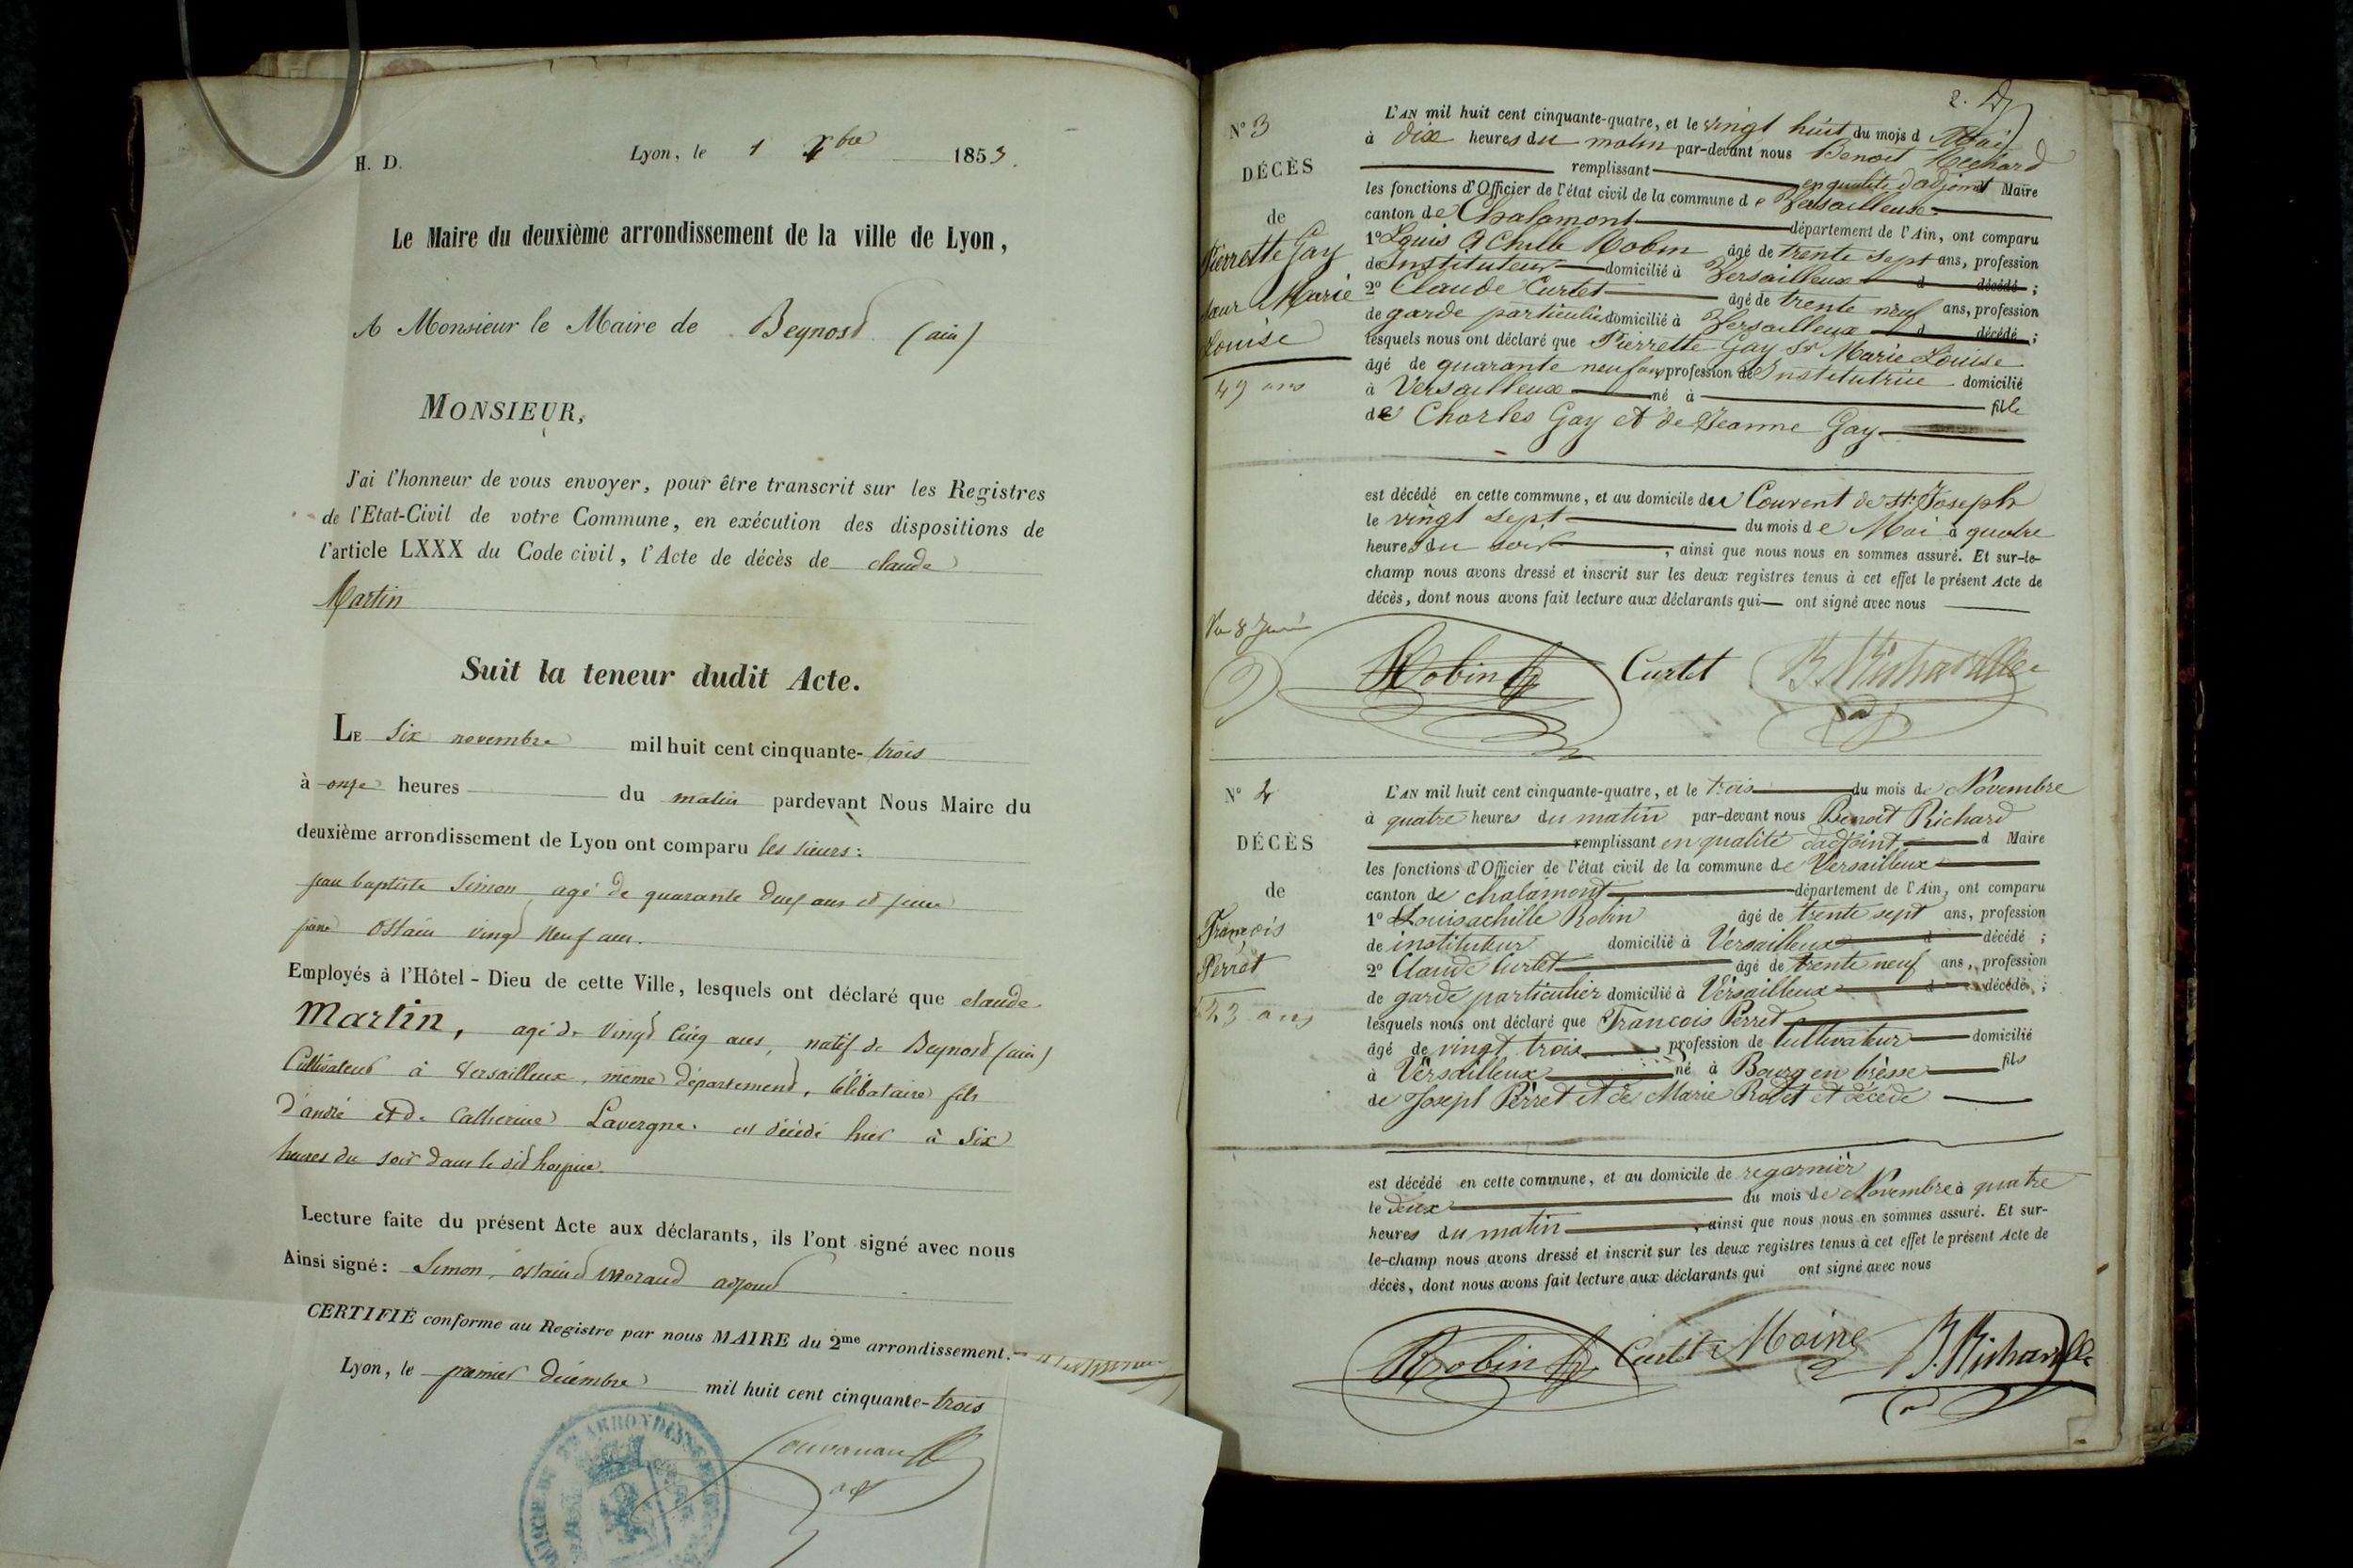 H. D.
Lyon, le 1 Xbre 1853.
Le Maire du deuxième arrondissement de la ville de Lyon,
A Monsieur le Maire de Beynost (ain)
MONSIEUR,
J'ai l'honneur de vous envoyer, pour être transcrit sur les Registres
de l'Etat-Civil de votre Commune, en exécution des dispositions de
l'article LXXX du Code civil, l'Acte de décès de claude
Martin
Suit la teneur dudit Acte.
LE Six novembre mil huit cent cinquante-trois
à onze heures du matin pardevant Nous Maire du
deuxième arrondissement de Lyon ont comparu les sieurs:
jean baptiste Simon agé de quarante deux ans et
Ostain vingt neuf ans.
Employés à l'Hôtel-Dieu de cette Ville, lesquels ont déclaré que claude
Martin, agé de vingt cinq ans, natif de Beynost (ain)
Cultivateur à Versailleux, même département, Célibataire fils
d'andré et de Catherine Lavergne. est décédé hier à Six
heures du soir dans le dit hospice.
Lecture faite du présent Acte aux déclarants, ils l'ont signé avec nous
Ainsi signé: Simon, Ostain et Moraud adjoint
CERTIFIÉ conforme au Registre par nous MAIRE du 2me arrondissement.
Lyon, le premier décembre mil huit cent cinquante-trois
2.
N° 3
DÉCÈS
de
Pierrette Gay
Sœur Marie
Louise
49 ans
L'AN mil huit cent cinquante-quatre, et le vingt huit du mois d Mai
à dix heures du matin par-devant nous Benoit Richard
remplissant en qualité d'adjoint Maire
les fonctions d'Officier de l'état civil de la commune de Versailleux
canton de Chalamont département de l'Ain, ont comparu
1° Louis Achille Robin âgé de trente sept ans, profession
de Instituteur domicilié à Versailleux d décédé ;
2° Claude Curtet âgé de trente neuf ans, profession
de garde particulier domicilié à Versailleux d décédé ;
lesquels nous ont déclaré que Pierrette Gay Sr Marie Louise
âgé de quarante neuf ans profession de Institutrice domicilié
à Versailleux né à fille
de Charles Gay et de Jeanne Gay
est décédé en cette commune, et au domicile du Couvent de St. Joseph
le vingt sept du mois de Mai à quatre
heures du soir, ainsi que nous nous en sommes assuré. Et sur-le-
champ nous avons dressé et inscrit sur les deux registres tenus à cet effet le présent Acte de
décès, dont nous avons fait lecture aux déclarants qui ont signé avec nous
Vu 8 Juin
Robin Curtet B. Richard
N° 4
DÉCÈS
de
François
Perret
23 ans
L'AN mil huit cent cinquante-quatre, et le trois du mois de Novembre
à quatre heures du matin par-devant nous Benoit Richard
remplissant en qualité d'adjoint d Maire
les fonctions d'Officier de l'état civil de la commune de Versailleux
canton de chalamont département de l'Ain, ont comparu
1° Louis achille Robin âgé de trente sept ans, profession
de instituteur domicilié à Versailleux d décédé ;
2° Claude Curtet âgé de trente neuf ans, profession
de garde particulier domicilié à Versailleux d décédé ;
lesquels nous ont déclaré que François Perret
âgé de vingt trois profession de Cultivateur domicilié
à Versailleux né à Bourg en bresse fils
de Joseph Perret et de Marie Rodet et décédé
est décédé en cette commune, et au domicile de regarnier
le deux du mois de Novembre à quatre
heures du matin, ainsi que nous nous en sommes assuré. Et sur-
le-champ nous avons dressé et inscrit sur les deux registres tenus à cet effet le présent Acte de
décès, dont nous avons fait lecture aux déclarants qui ont signé avec nous
Robin Curtet Moine B. Richard